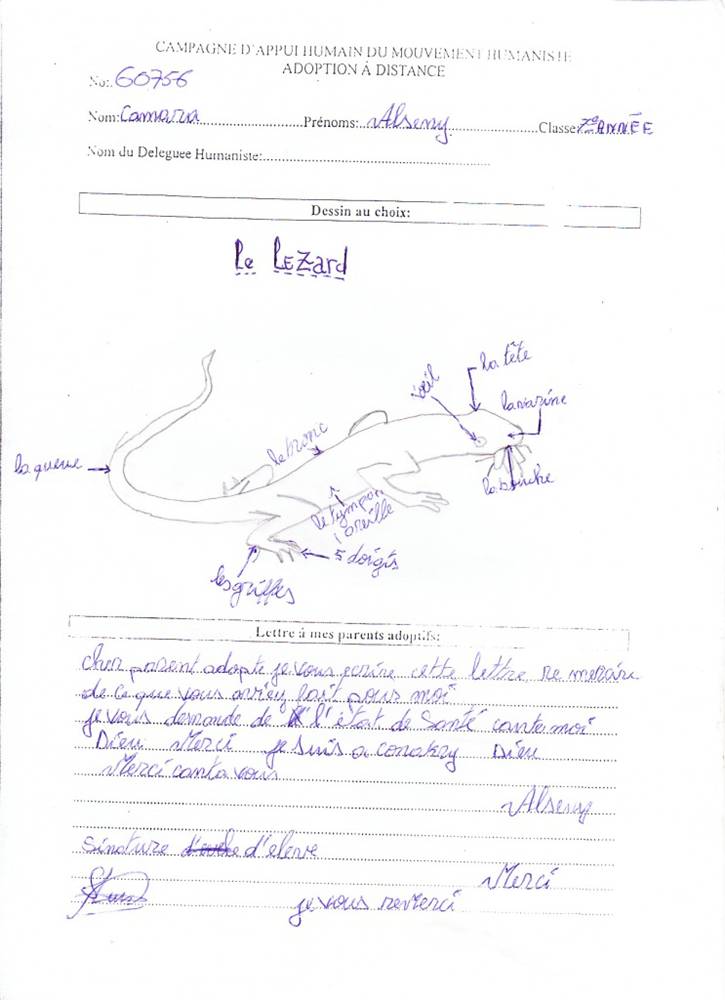 CAMPAGNE D'APPUI HUMAIN DU MOUVEMENT HUMANISTE
ADOPTION À DISTANCE
No: 60756
Nom: Camara Prénoms: Alseny Classe: 7e ANNÉE
Nom du Deleguee Humaniste:
Dessin au choix:
Le LEZard
la tête
l'œil
la narine
le tronc
la queue
la bouche
le tympon
l'oreille
5 doigts
les griffes
Lettre à mes parents adoptifs:
cher parent adopte je vous ecrire cette lettre re merçire
de ce que vous avriey fait pour moi
je vous demande de l'état de Santé cante moi
Dieu Merci je suis a conakry Dieu
Merci canta vous
Alseny
Sinature d'eleve
Merci
je vous remerci